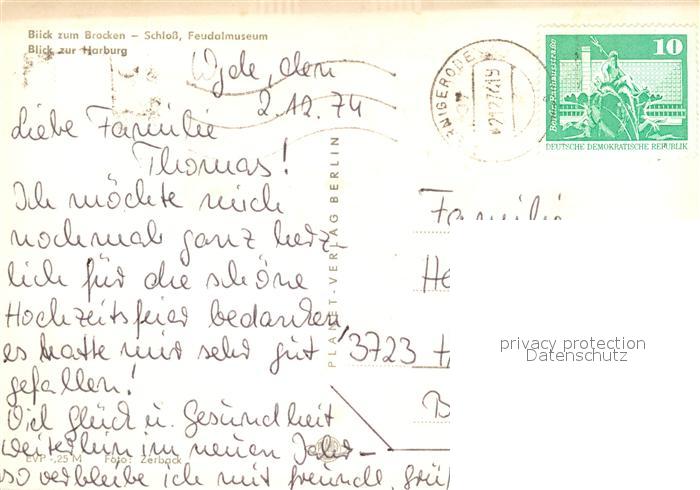 Blick zum Brocken – Schloß, Feudalmuseum
Blick zur Harburg
Wgde, den
2.12.74
Liebe Familie
Thomas!
Ich möchte mich
nochmals ganz herz-
lich für die schöne
Hochzeitsfeier bedanken,
es hatte mir sehr gut
gefallen!
Viel Glück u. Gesundheit
weiterhin im neuen Jahr –
so verbleibe ich mit freundl. Grüß
EVP -,25 M Foto: Zerback
PLANET-VERLAG BERLIN
RNIGERODE
10
Berlin, Rathausstraße
DEUTSCHE DEMOKRATISCHE REPUBLIK
Familie
He
3723 H
B
privacy protection
Datenschutz